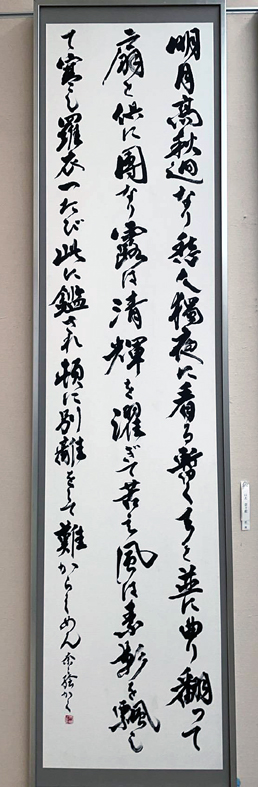 明月高秋迥なり愁人獨夜に看る暫く弓と並に曲り翻って
扇と倶に團なり露は清輝を濯ぎて苦し風は素影を飄し
て寒し羅衣一たび此に鑑され頓に別離をして難からしめん